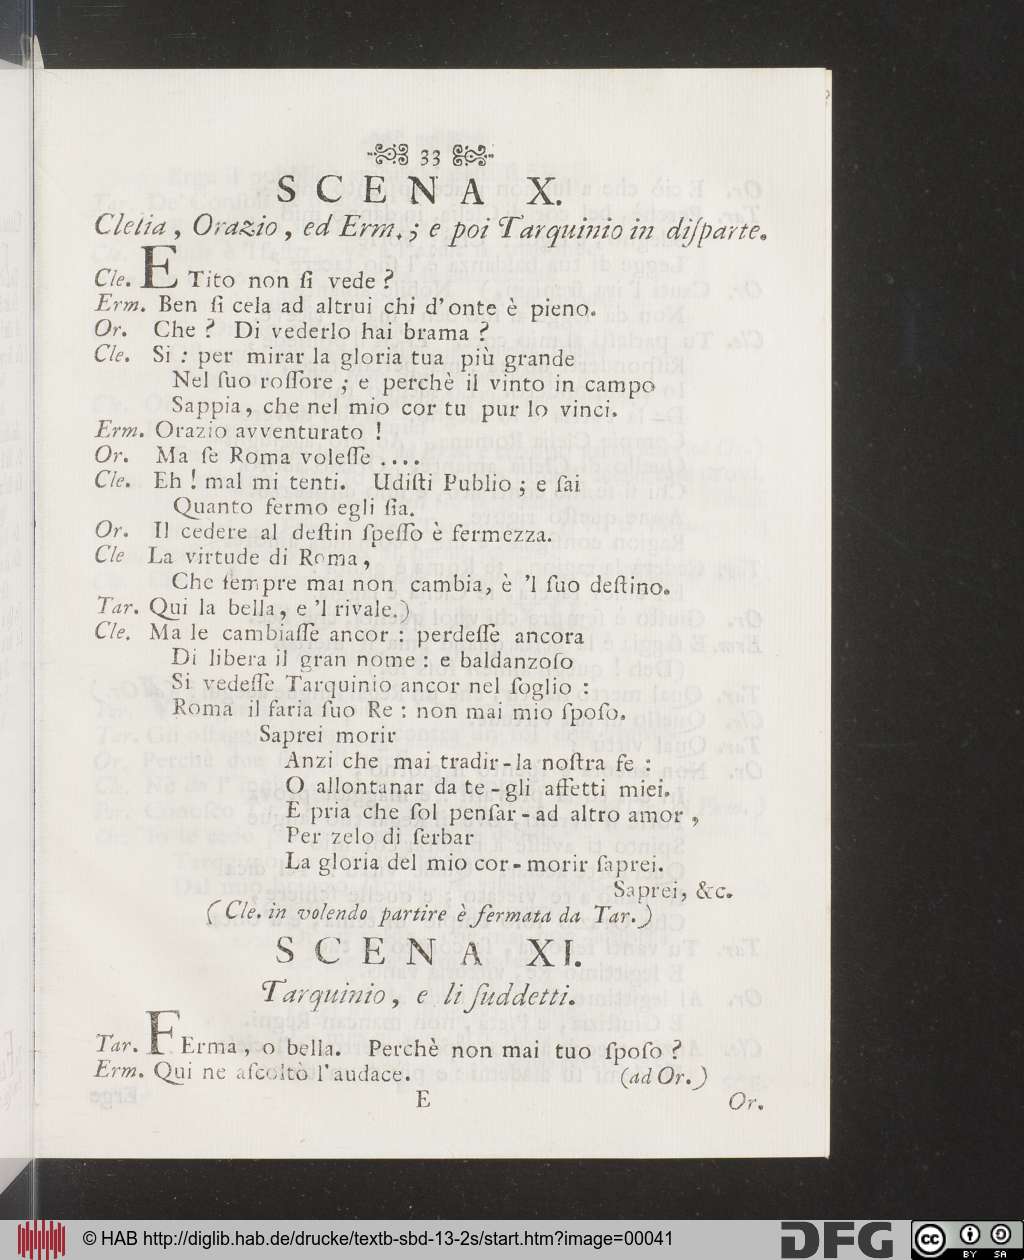 33
SCENA X.
Clelia, Orazio, ed Erm.; e poi Tarquinio in diſparte.
Cle. E Tito non ſi vede?
Erm. Ben ſi cela ad altrui chi d'onte è pieno.
Or. Che? Di vederlo hai brama?
Cle. Si: per mirar la gloria tua più grande
Nel ſuo roſſore; e perchè il vinto in campo
Sappia, che nel mio cor tu pur lo vinci.
Erm. Orazio avventurato!
Or. Ma ſe Roma voleſſe ....
Cle. Eh! mal mi tenti. Udiſti Publio; e ſai
Quanto fermo egli ſia.
Or. Il cedere al deſtin ſpeſſo è fermezza.
Cle La virtude di Roma,
Che ſempre mai non cambia, è 'l ſuo deſtino.
Tar. Qui la bella, e 'l rivale.)
Cle. Ma le cambiaſſe ancor: perdeſſe ancora
Di libera il gran nome: e baldanzoſo
Si vedeſſe Tarquinio ancor nel ſoglio:
Roma il faria ſuo Re: non mai mio ſpoſo.
Saprei morir
Anzi che mai tradir-la noſtra fe:
O allontanar da te-gli affetti miei.
E pria che ſol penſar-ad altro amor,
Per zelo di ſerbar
La gloria del mio cor-morir ſaprei.
Saprei, &c.
(Cle. in volendo partire è fermata da Tar.)
SCENA XI.
Tarquinio, e li ſuddetti.
Tar. FErma, o bella. Perchè non mai tuo ſpoſo?
Erm. Qui ne aſcoltò l'audace. (ad Or.)
E Or.
© HAB http://diglib.hab.de/drucke/textb-sbd-13-2s/start.htm?image=00041
DFG
cc BY SA